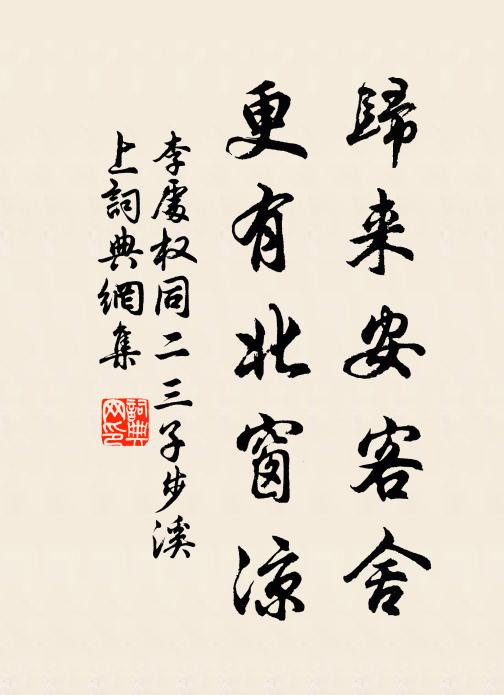 歸来安客舍
更有北窗涼
李處权同二三子步溪
上詞典網集
詞典网印